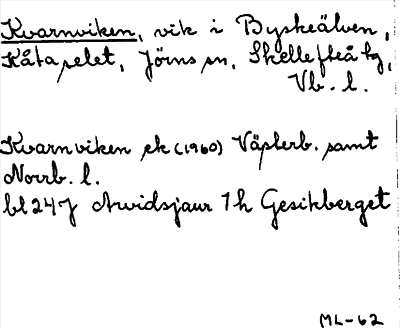 Kvarnviken, vik i Byskeälven,
Kåtaselet, Jörns sn, Skellefteå kg,
Vb. l.
Kvarnviken ek (1960) Västerb. samt
Norrb. l.
bl 24 J Arvidsjaur 1 h Gesikberget
ML-62